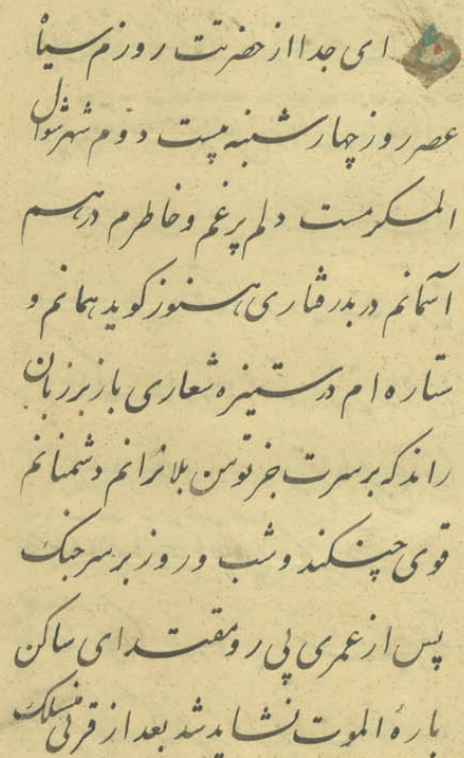 ای جدا از حضرتت روزم سیاه
عصر روز چهارشنبه بیست دوم شهر شوال
المکرمست دلم پر غم و خاطرم درهم
آسمانم در بدرفتاری هنوز گوید همانم و
ستاره ام در ستیزه شعاری باز بر زبان
راند که بر سرت جز توسن بلا نرانم دشمنانم
قوی چنگند و شب و روز بر سر جنگ
پس از عمری پی رو مقتدای ساکن
بارهٔ الموت نشاید شد بعد از قرنی منسلک